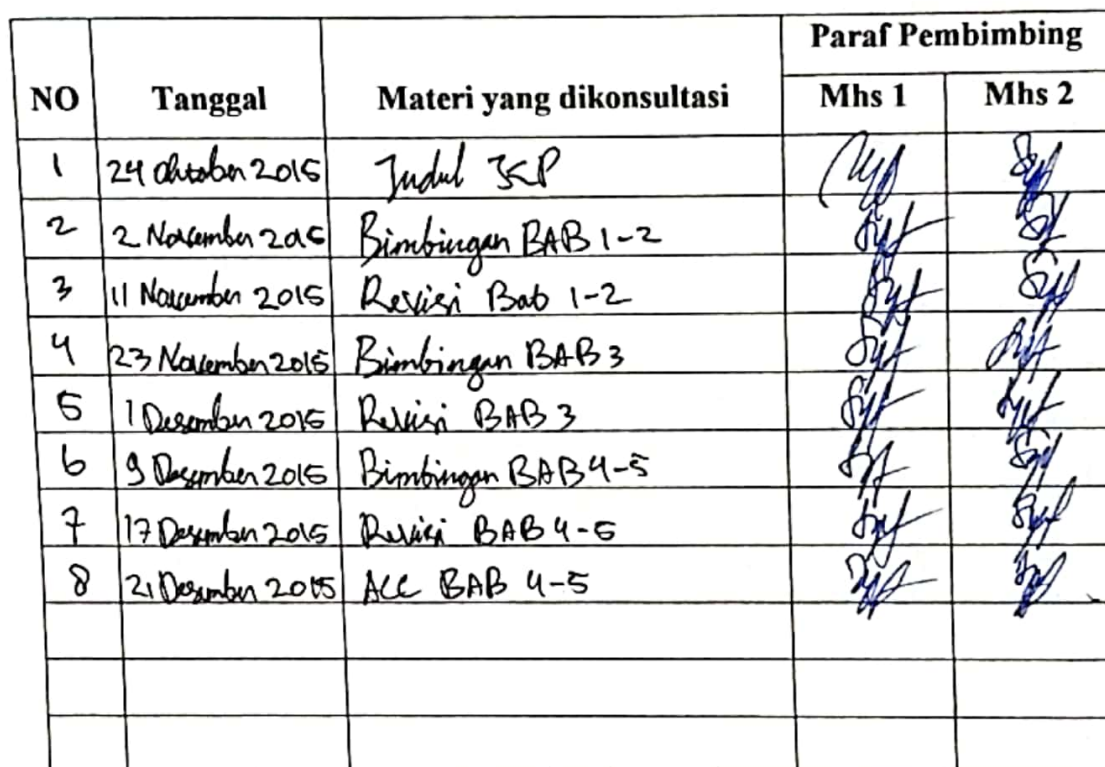 Paraf Pembimbing
NO Tanggal Materi yang dikonsultasi Mhs 1 Mhs 2
1 24 Oktober 2015 Judul
2 2 November 2015 Bimbingan BAB 1-2
3 11 November 2015 Revisi Bab 1-2
4 23 November 2015 Bimbingan BAB 3
5 1 Desember 2015 Revisi BAB 3
6 9 Desember 2015 Bimbingan BAB 4-5
7 17 Desember 2015 Revisi BAB 4-5
8 21 Desember 2015 ACC BAB 4-5